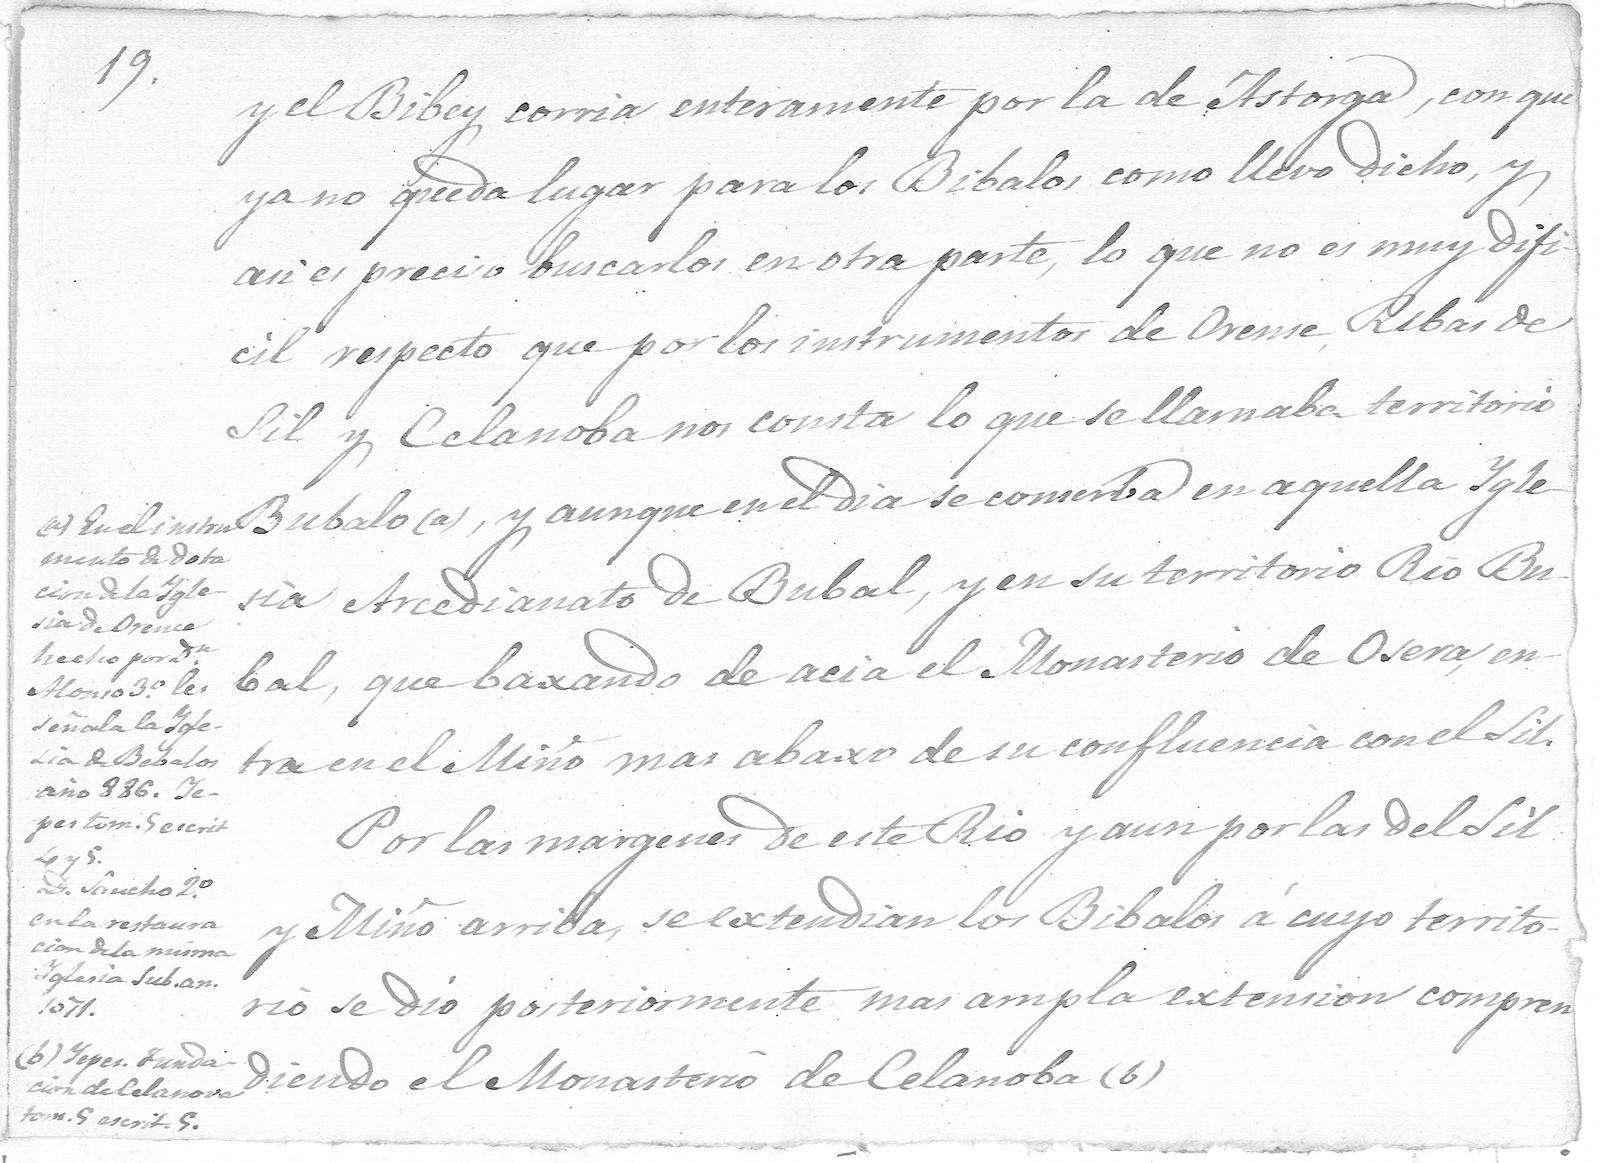 19.
y el Bibey corria enteramente por la de Astorga, con que
ya no queda lugar para los Bibalos como llevo dicho, y
asi es preciso buscarlos en otra parte, lo que no es muy difi-
cil respecto que por los instrumentos de Orense, Ribas de
Sil y Celanoba nos consta lo que se llamaba territorio
Bubalo (a), y aunque en el dia se conserba en aquella Ygle-
sia Arcedianato de Bubal, y en su territorio Rio Bu-
bal, que baxando de acia el Monasterio de Osera, en-
tra en el Miño mas abaxo de su confluencia con el Sil.
Por las margenes de este Rio y aun por las del Sil
y Miño arriba, se extendian los Bibalos á cuyo territo-
rio se dió posteriormente mas ampla extension compren
diendo el Monasterio de Celanoba (b)
(a) En el instru
mento de dota
cion de la Ygle-
sia de Orense
hecho por Dn.
Alonso 3.º les
señala la Ygle-
sia de Bebalos
año 886. Ye-
pes tom. 5 escrit
4 y 5.
D. Sancho 2.º
en la restaura
cion de la misma
Yglesia sub. an.
1071.
(b) Yepes. Funda-
cion de Celanova
tom. 5 escrit. 5.